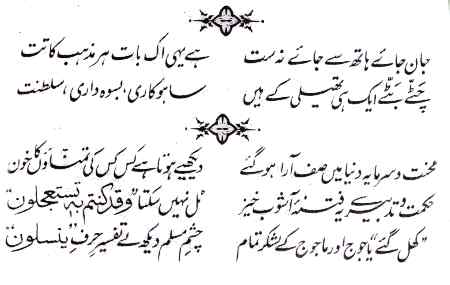 جان جائے ہاتھ سے جائے نہ ست ہے یہی اک بات ہر مذہب کا تت
چٹّے بٹّے ایک ہی تھیلی کے ہیں ساہوکاری، بسوہ داری، سلطنت
محنت و سرمایہ دنیا میں صف آرا ہو گئے دیکھیے ہوتا ہے کس کس کی تمناؤں کا خون
حکمت و تدبیر سے یہ فتنۂ آشوب خیز ٹل نہیں سکتا ”وقد کنتم بہ تستعجلون“
”کھل گئے“ یاجوج اور ماجوج کے لشکر تمام چشمِ مسلم دیکھ لے تفسیرِ حرفِ ”ینسلون“